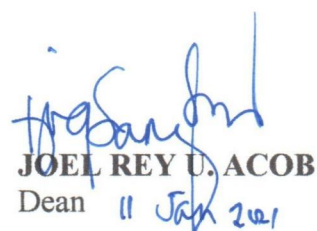 JOEL REY U. ACOB
Dean 11 Jan 2021